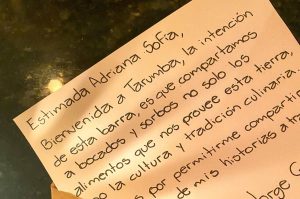 Estimada Adriana Sofía,
Bienvenida a Tarumba, la intención
de esta barra, es que compartamos
a bocados y sorbos no solo los
alimentos que nos provee esta tierra,
no la cultura y tradición culinaria
s por permitirme compartir
de mis historias a tra
Jorge G